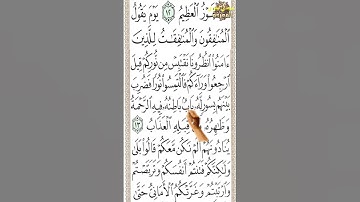 ٱلْفَوْزُ ٱلْعَظِيمُ ١٢ يَوْمَ يَقُولُ
ٱلْمُنَٰفِقُونَ وَٱلْمُنَٰفِقَٰتُ لِلَّذِينَ
ءَامَنُوا۟ ٱنظُرُونَا نَقْتَبِسْ مِن نُّورِكُمْ قِيلَ
ٱرْجِعُوا۟ وَرَآءَكُمْ فَٱلْتَمِسُوا۟ نُورًا فَضُرِبَ
بَيْنَهُم بِسُورٍ لَّهُۥ بَابٌۢ بَاطِنُهُۥ فِيهِ ٱلرَّحْمَةُ
وَظَٰهِرُهُۥ مِن قِبَلِهِ ٱلْعَذَابُ ١٣
يُنَادُونَهُمْ أَلَمْ نَكُن مَّعَكُمْ قَالُوا۟ بَلَىٰ
وَلَٰكِنَّكُمْ فَتَنتُمْ أَنفُسَكُمْ وَتَرَبَّصْتُمْ
وَٱرْتَبْتُمْ وَغَرَّتْكُمُ ٱلْأَمَانِىُّ حَتَّىٰ